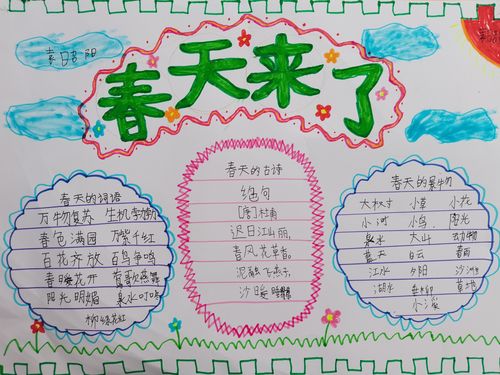 春天来了
春天的词语
万物复苏 生机勃勃
春色满园 万紫千红
百花齐放 百鸟争鸣
春暖花开 莺歌燕舞
阳光明媚 泉水叮咚
柳绿花红
春天的古诗
绝句
[唐]杜甫
迟日江山丽,
春风花草香。
泥融飞燕子,
沙暖
春天的景物
大树 小草 小花
小河 小鸟 阳光
泉水 大山
蓝天 白云 春雨
江水 夕阳 沙洲
湖水 草地
小溪